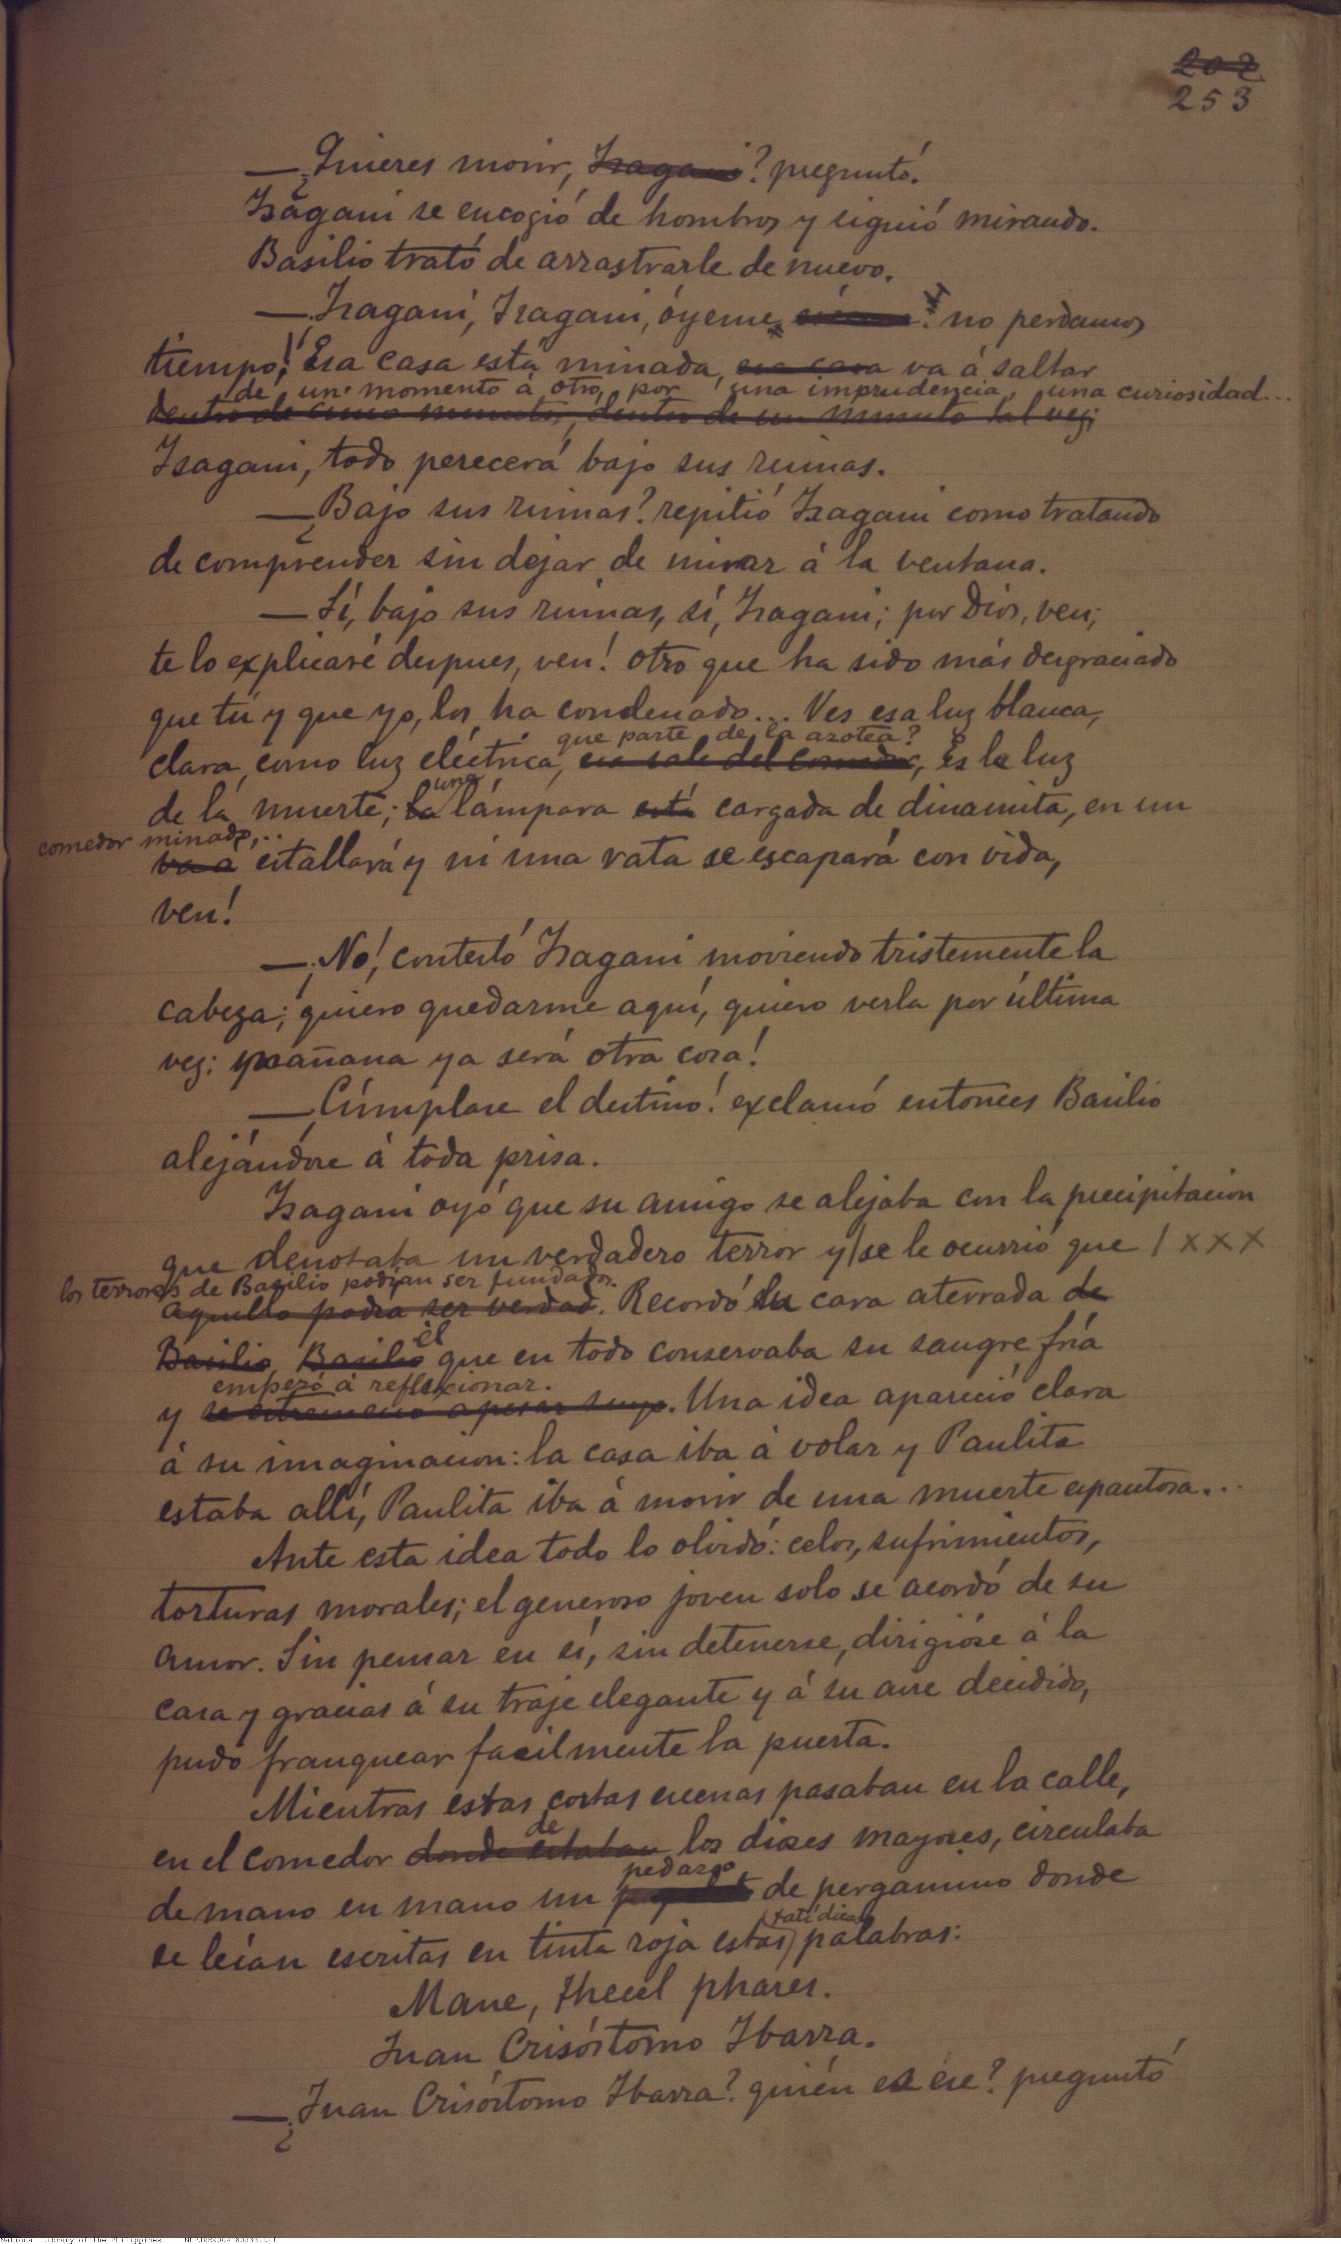 202
253
—¿Quieres morir, Isagani? preguntó.
Isagani se encogió de hombros y siguió mirando.
Basilio trató de arrastrarle de nuevo.
—¡Isagani, Isagani, óyeme, no perdamos
tiempo! Esa casa está minada, esa casa va á saltar
de un momento á otro, por una imprudencia, una curiosidad...
dentro de cinco minutos, dentro de un minuto tal vez;
Isagani, todo perecerá bajo sus ruinas.
—¿Bajo sus ruinas? repitió Isagani como tratando
de comprender sin dejar de mirar á la ventana.
—Sí, bajo sus ruinas, sí, Isagani; por Dios, ven;
te lo explicaré despues, ven! otro que ha sido más desgraciado
que tú y que yo, los ha condenado... Ves esa luz blanca,
que parte de la azotea?
clara, como luz eléctrica, esa sale del comedor, Es la luz
una
de la muerte; la lámpara está cargada de dinamita, en un
comedor minado,..
va a estallará y ni una rata se escapará con vida,
ven!
—¡No! contestó Isagani moviendo tristemente la
cabeza; quiero quedarme aquí, quiero verla por última
vez: mañana ya será otra cosa!
—¡Cúmplase el destino! exclamó entonces Basilio
alejándose á toda prisa.
Isagani oyó que su amigo se alejaba con la precipitacion
que denotaba un verdadero terror y/se le ocurrió que / x x x
los terrores de Basilio podían ser fundados.
aquello podia ser verdad. Recordó su cara aterrada de
él
Basilio, Basilio que en todo conservaba su sangre fría
empezó á reflexionar.
y se estremeció a pesar suyo. Una idea apareció clara
á su imaginacion: la casa iba á volar y Paulita
estaba allí, Paulita iba á morir de una muerte espantosa...
Ante esta idea todo lo olvidó: celos, sufrimientos,
torturas morales; el generoso joven solo se acordó de su
amor. Sin pensar en sí, sin detenerse, dirigióse á la
casa y gracias á su traje elegante y á su aire decidido,
pudo franquear facilmente la puerta.
Mientras estas cortas escenas pasaban en la calle,
de
en el comedor donde estaban los dioses mayores, circulaba
pedazo
de mano en mano un de pergamino donde
fatídicas
se leían escritas en tinta roja estas palabras:
Mane, thecel phares.
Juan Crisóstomo Ibarra.
—¿Juan Crisóstomo Ibarra? quién es ése? preguntó